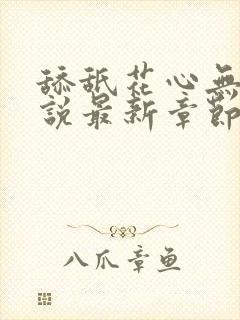 舔舐花心無
說最新章節
八爪章鱼